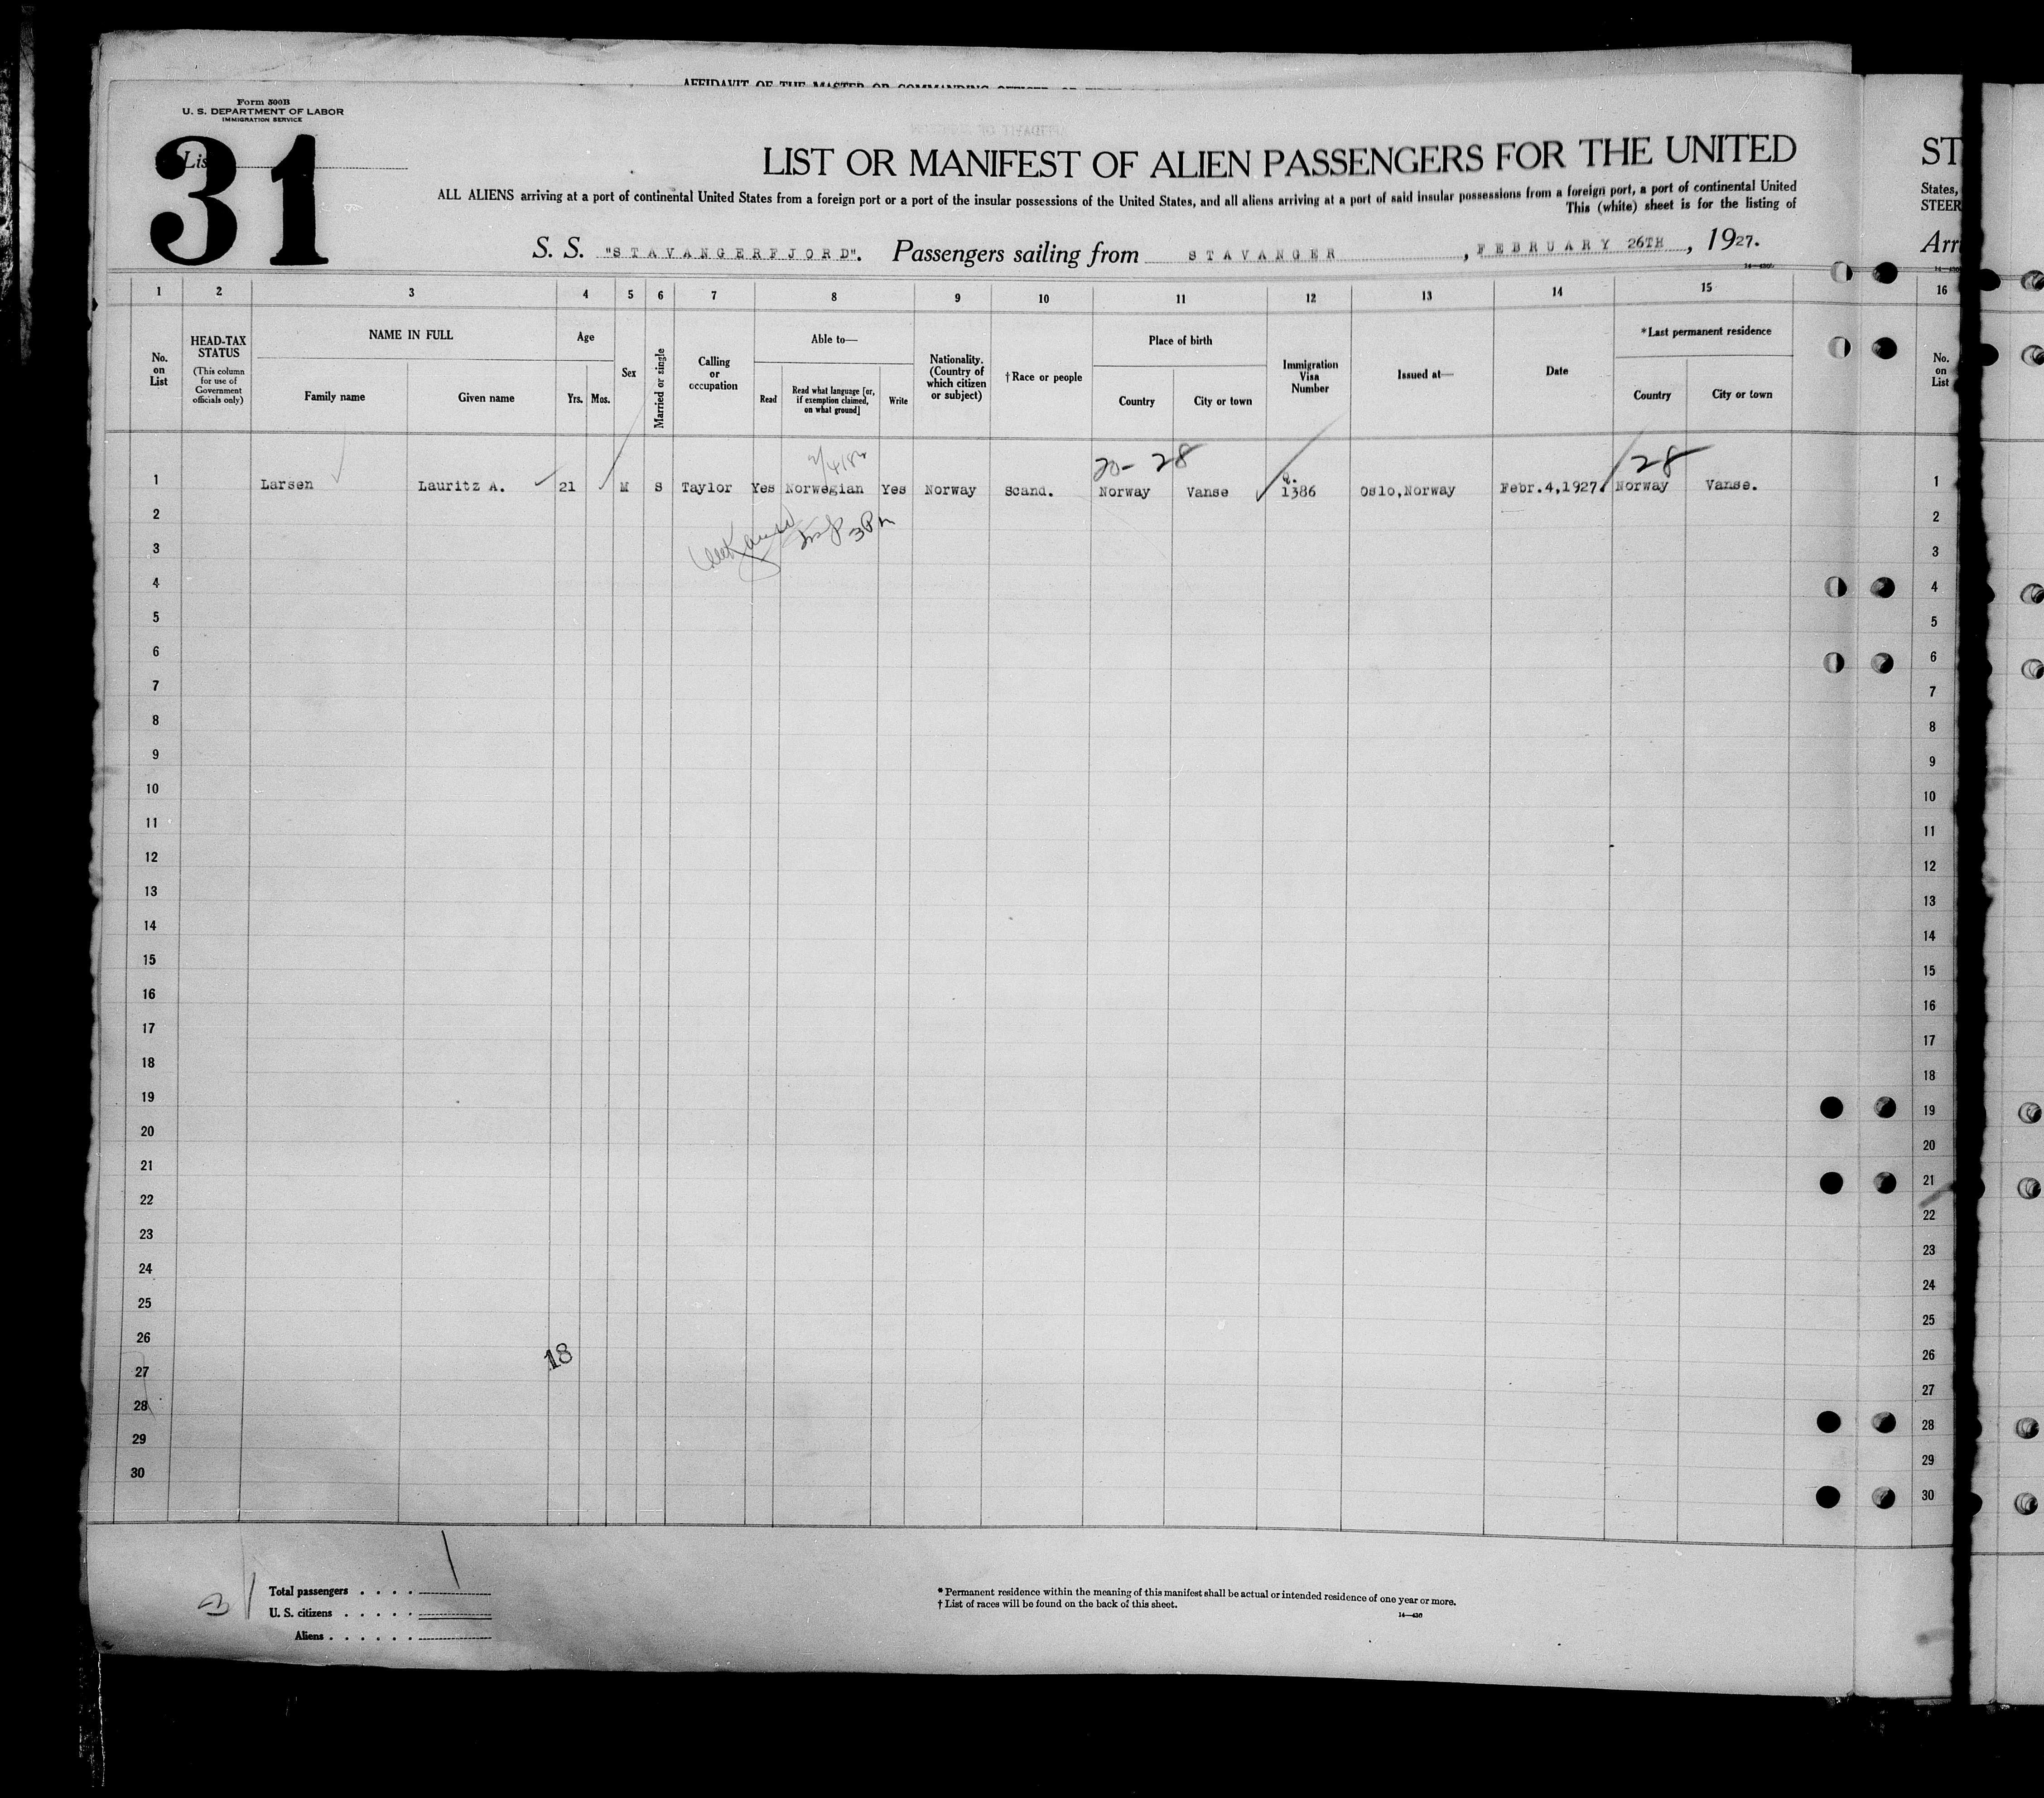 AFFIDAVIT OF THE MASTER OR COMMANDING OFFICER, OR FIRST
Form 500B
U. S. DEPARTMENT OF LABOR
IMMIGRATION SERVICE
List
31
LIST OR MANIFEST OF ALIEN PASSENGERS FOR THE UNITED
ALL ALIENS arriving at a port of continental United States from a foreign port or a port of the insular possessions of the United States, and all aliens arriving at a port of said insular possessions from a foreign port, a port of continental United
This (white) sheet is for the listing of
S. S. "STAVANGERFJORD". Passengers sailing from STAVANGER, FEBRUARY 26TH, 1927.
ST
States,
STEER
Arr
1 2 3 4 5 6 7 8 9 10 11 12 13 14 15 16
No. on List
HEAD-TAX STATUS
(This column for use of Government officials only)
NAME IN FULL
Family name
Given name
Age
Yrs. Mos.
Sex
Married or single
Calling or occupation
Able to—
Read
Read what language [or, if exemption claimed, on what ground]
Write
Nationality. (Country of which citizen or subject)
†Race or people
Place of birth
Country
City or town
Immigration Visa Number
Issued at—
Date
*Last permanent residence
Country
City or town
No. on List
20- 28
28
1 Larsen Lauritz A. 21 M S Taylor Yes Norwegian Yes Norway Scand. Norway Vanse 1386 Oslo,Norway Febr.4,1927. Norway Vanse. 1
2 2
3 3 P m 3
4 4
5 5
6 6
7 7
8 8
9 9
10 10
11 11
12 12
13 13
14 14
15 15
16 16
17 17
18 18
19 19
20 20
21 21
22 22
23 23
24 24
25 25
26 26
18
27 27
28 28
29 29
30 30
Total passengers
U. S. citizens
Aliens
* Permanent residence within the meaning of this manifest shall be actual or intended residence of one year or more.
† List of races will be found on the back of this sheet.
14—430